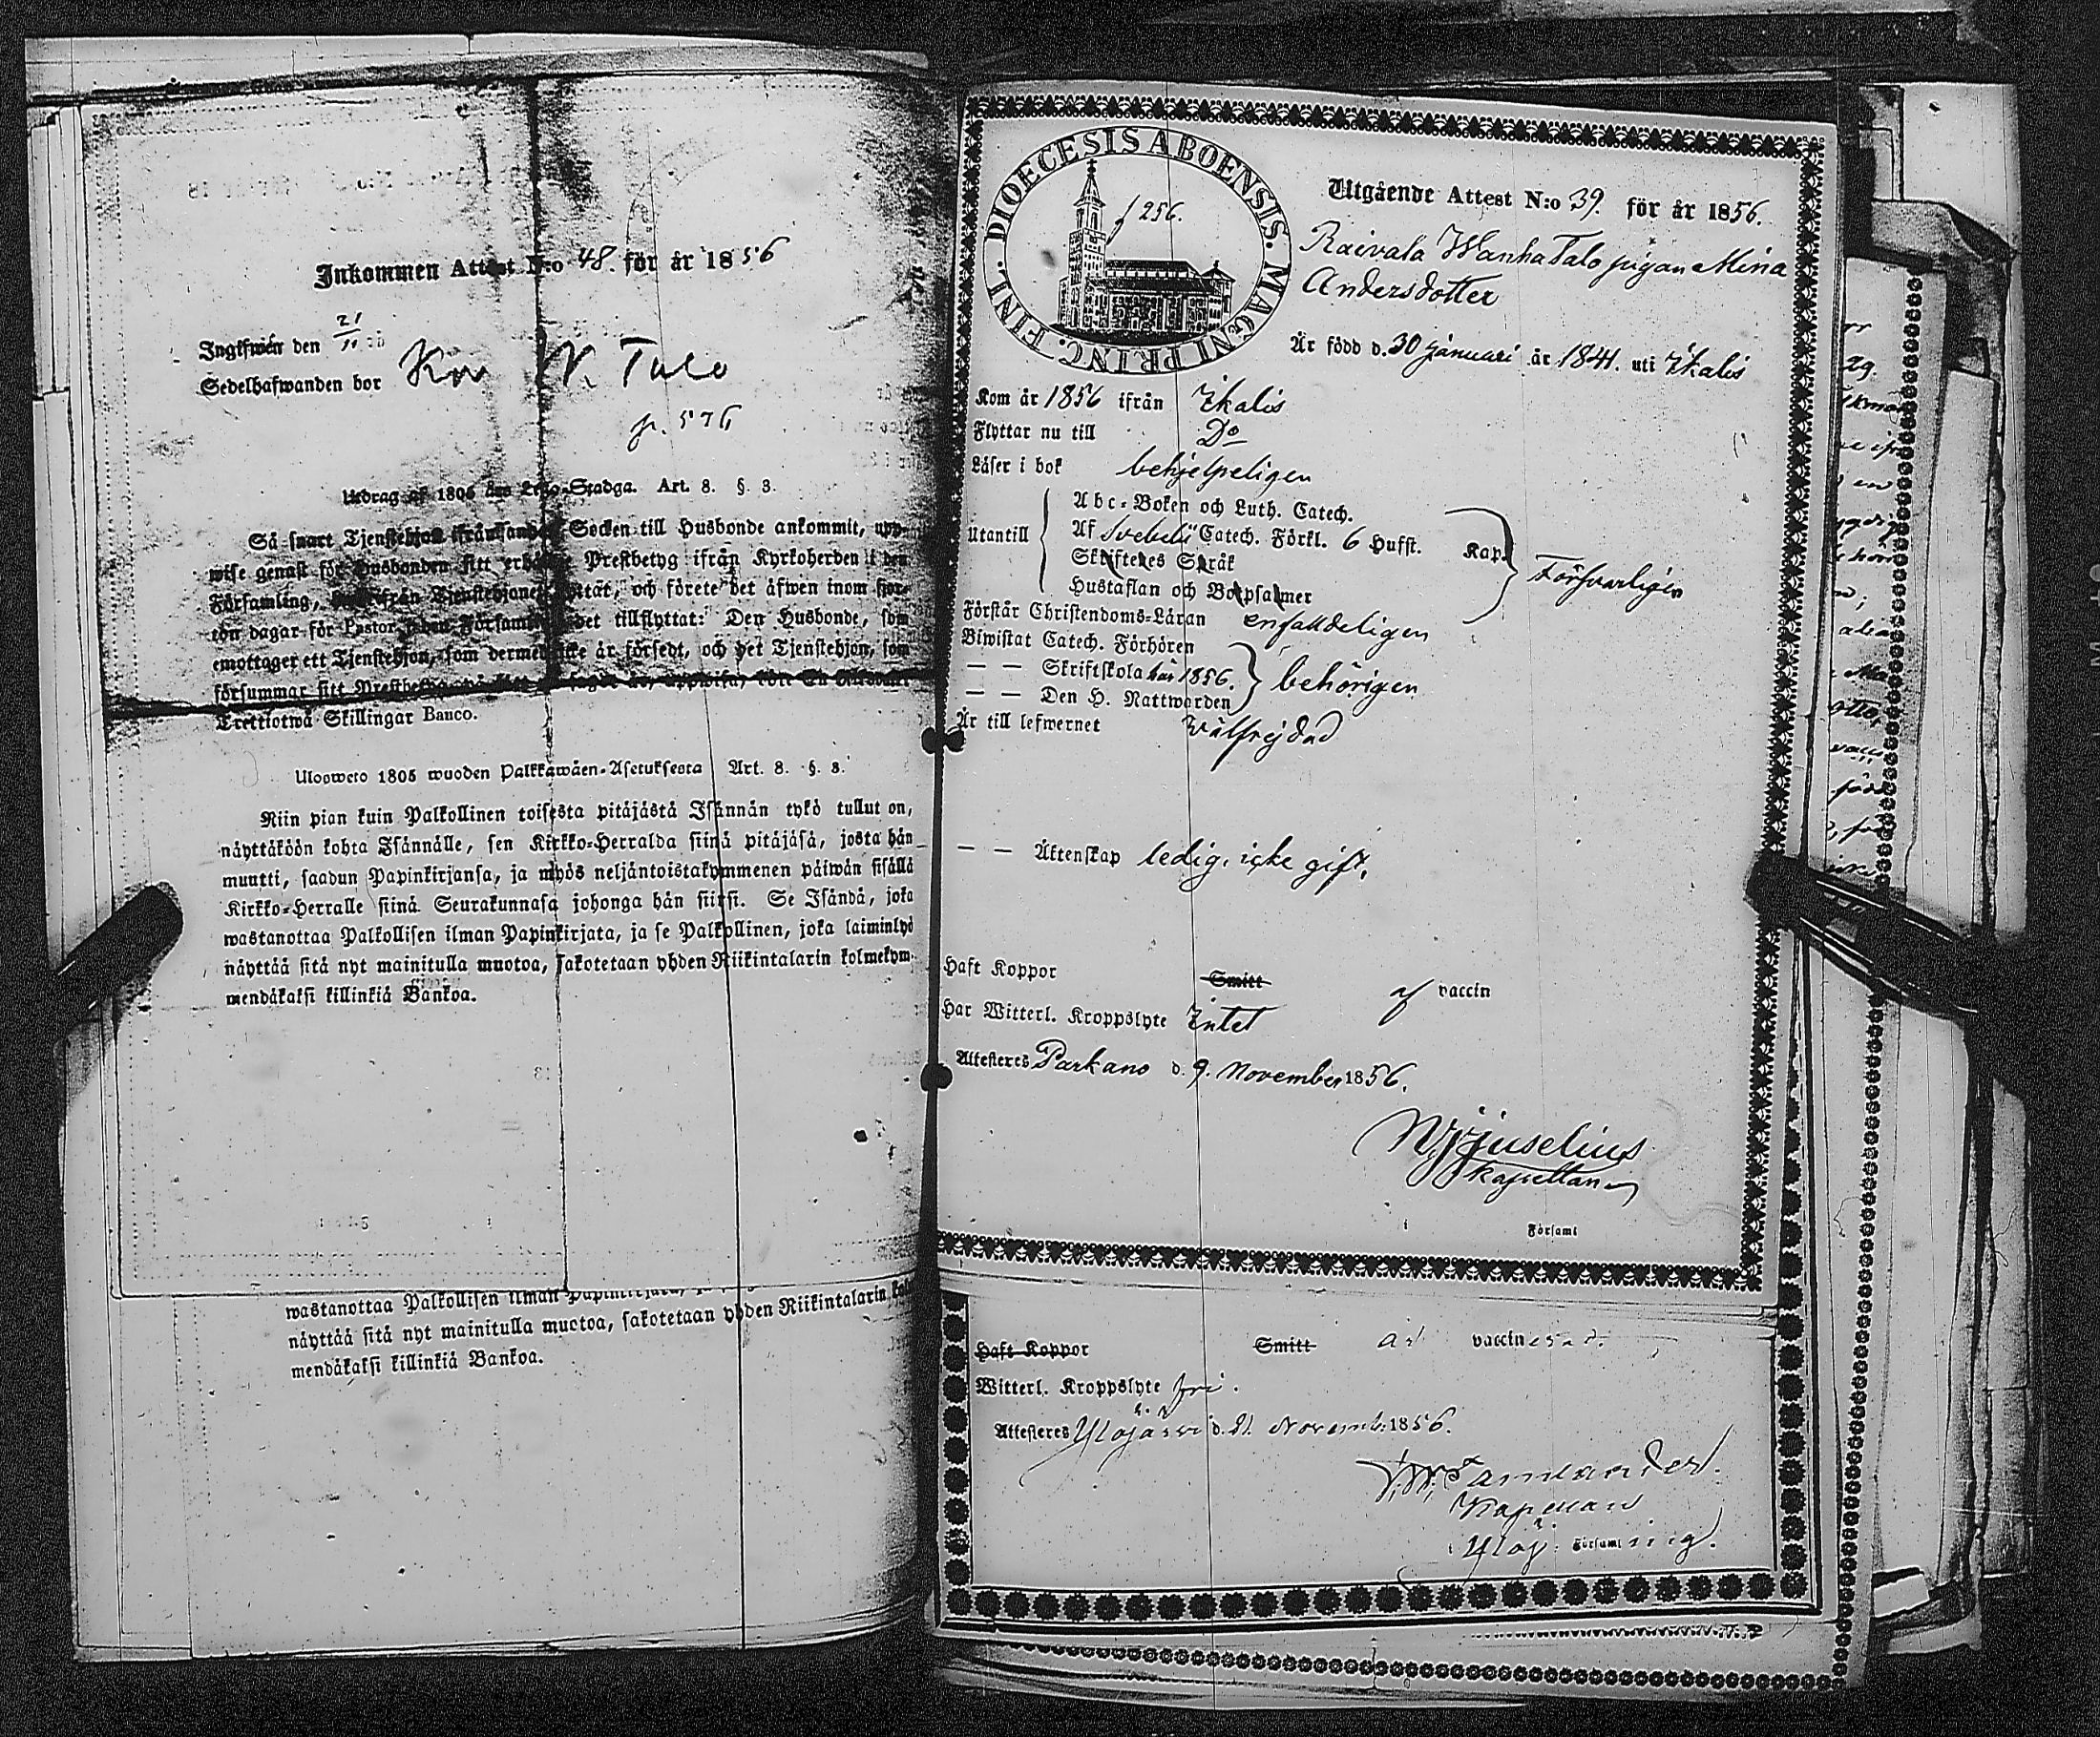 Inkommen Attest N:o 48. för år 1856
Ingifwen den 21/11
Sedelhafwanden bor
p. 576
Utdrag af 1805 års Lego-Stadga. Art. 8. §. 3.
Så snart Tjenstehjon ifrån annan Socken till Husbonde ankommit, upp-
wise genast för Husbonden sitt erhållne Prestbetyg ifrån Kyrkoherden i den
Församling, Tjenstehjonet och förete det äfwen inom fjor-
ton dagar för Pastor i den Församling det tillflyttat: Den Husbonde, som
emottager ett Tjenstehjon, som dermed icke är försedt, och det Tjenstehjon, som
försummar sitt Prestbetyg
Trettiotwå Skillingar Banco.
Ulosweto 1805 wuoden Palkkawäen-Asetuksesta Art. 8. §. 3.
Niin pian kuin Palkollinen toisesta pitäjästä Isännän tykö tullut on,
näyttäköön kohta Isännälle, sen Kirkko-Herralda siinä pitäjäsä, josta hän
muutti, saadun Papinkirjansa, ja myös neljäntoistakymmenen päiwän sisällä
Kirkko-Herralle siinä Seurakunnasa johonga hän siirsi. Se Isändä, joka
wastanottaa Palkollisen ilman Papinkirjata, ja se Palkollinen, joka laiminlyö
näyttää sitä nyt mainitulla muotoa, sakotetaan yhden Riikintalarin kolmekym-
mendäkaksi killinkiä Bankoa.
wastanottaa Palkollisen ilman
näyttää sitä nyt mainitulla muotoa, sakotetaan yhden Riikintalarin
mendäkaksi killinkiä Bankoa.
DIOECESIS ABOENSIS. MAGNI PRINC. FINL.
256.
Utgående Attest N:o 39. för år 1856.
Raivala Wanha Talo pigan Mina
Andersdotter
Är född d. 30 januari år 1841. uti Ikalis
Kom år 1856 ifrån Ikalis
Flyttar nu till Do
Läser i bok behjelpeligen
Utantill
Abc-Boken och Luth. Catech.
Af Svebelii Catech. Förkl. 6 Hufst. Kap.
Skriftenes Språk
Hustaflan och Botpsalmer
Försvarligen
Förstår Christendoms-Läran enfaldeligen
Biwistat Catech. Förhören
— — Skriftskola här 1856.
— — Den H. Nattwarden
behörigen
Är till lefwernet välfrejdad
— — Äktenskap ledig, icke gift.
Haft Koppor Smitt af vaccin
Har Witterl. Kroppslyte Intet
Attesteres Parkano d. 9. November 1856.
Juselius
Kapellan
Församl
Haft Koppor Smitt är vaccinerad.
Witterl. Kroppslyte fri.
Attesteres Ylöjärvi d. 21. Novemb. 1856.
Kapellan
Ylöj. Församling.